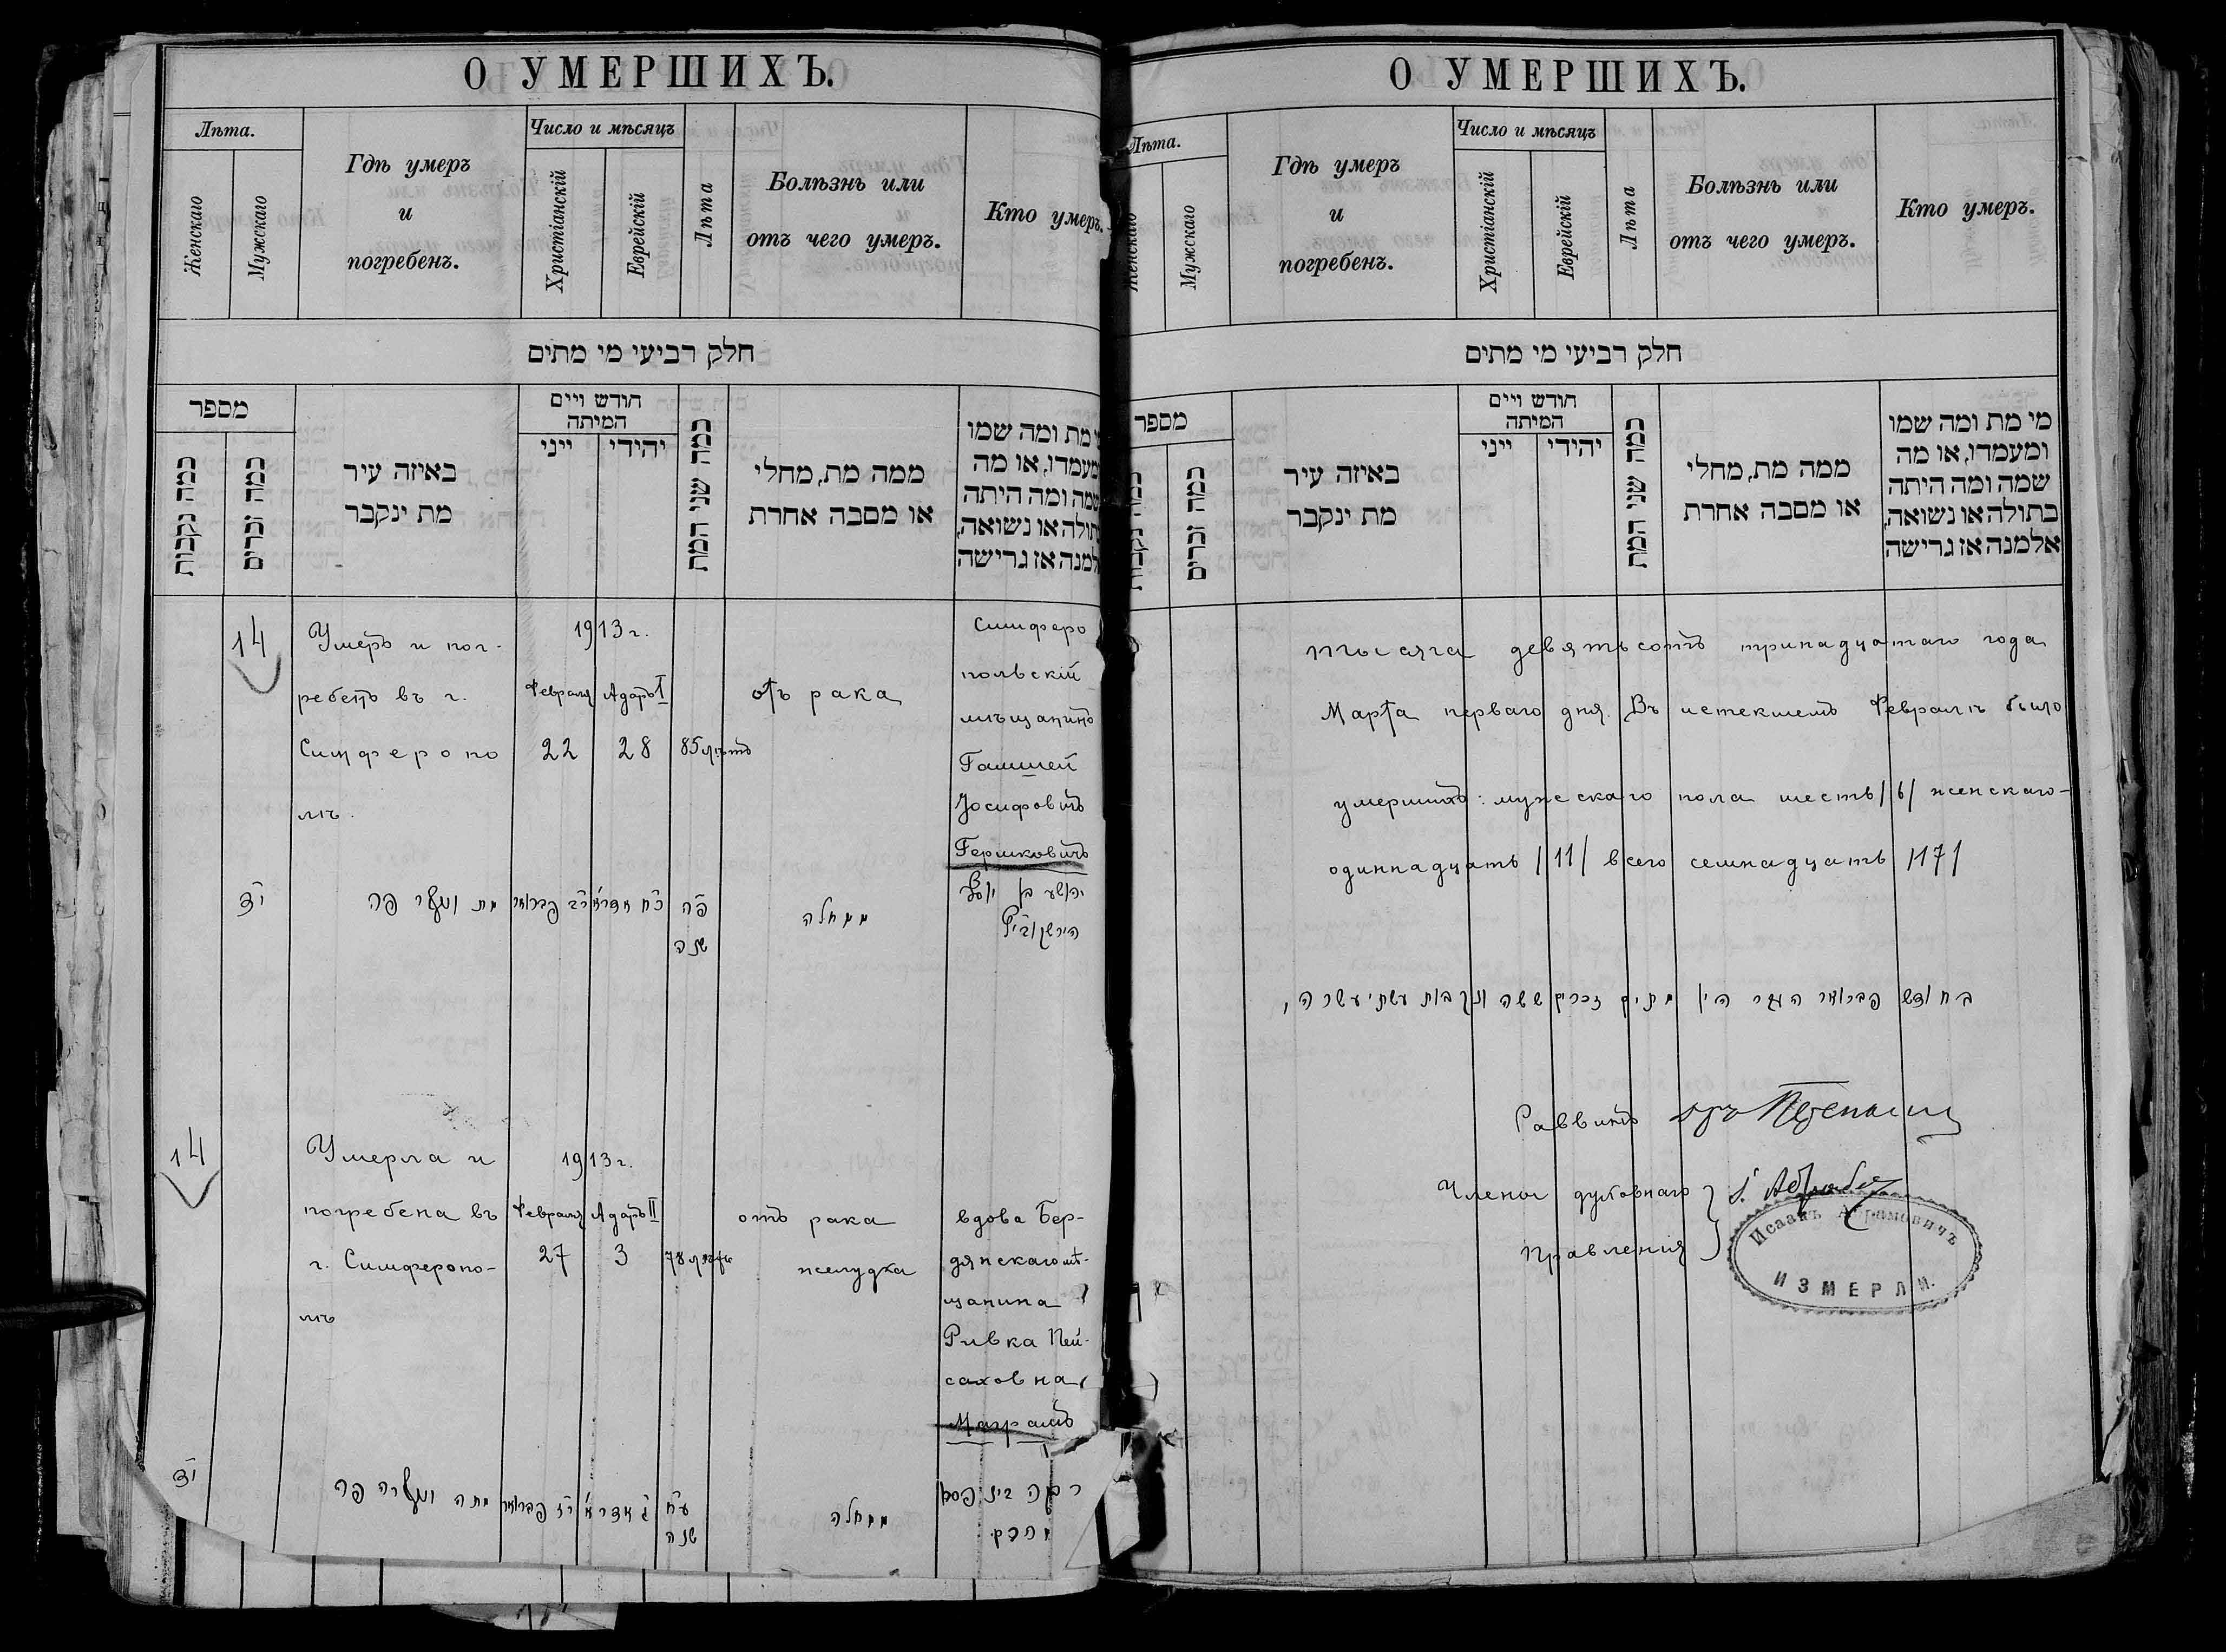 О УМЕРШИХЪ.
Лѣта.
Женскаго
Мужскаго
Гдѣ умеръ
и
погребенъ.
Число и мѣсяцъ
Христіанскій
Еврейскій
Лѣта
Болѣзнь или
отъ чего умеръ.
Кто умеръ.
חלק רביעי מי מתים
מספר
כמה נקבות
כמה זכרים
באיזה עיר
מת ינקבר
חודש ויים
המיתה
ייני
יהידי
כמה שני המת
ממה מת, מחלי
או מסבה אחרת
מי מת ומה שמו
ומעמדו, או מה
שמה ומה היתה
בתולה או נשואה,
אלמנה אז גרישה
14
Умеръ и пог-
ребенъ въ г.
Симферопо
лѣ.
1913 г.
Февраля Адаръ I
22 28
85 лѣтъ
отъ рака
Симферо
польскій
мѣщанинъ
Іосифовичъ
Гершковичъ
יד
מת ונקבר פה
כ״ח אדר א׳
פ״ה
שנה
ממחלה
יהושע בן יוסף
הירשקוביץ
14
Умерла и
погребена въ
г. Симферопо-
лѣ
1913 г.
Февраля Адаръ II
27 3
78 лѣтъ
отъ рака
желудка
вдова Бер-
дянскаго мѣ-
щанина
Ривка Пей-
саховна
יד
מתה ונקברה פה
ע״ח
שנה
ממחלה
רבקה בית פסח
О УМЕРШИХЪ.
Лѣта.
Женскаго
Мужскаго
Гдѣ умеръ
и
погребенъ.
Число и мѣсяцъ
Христіанскій
Еврейскій
Лѣта
Болѣзнь или
отъ чего умеръ.
Кто умеръ.
חלק רביעי מי מתים
מספר
כמה נקבות
כמה זכרים
באיזה עיר
מת ינקבר
חודש ויים
המיתה
ייני
יהידי
כמה שני המת
ממה מת, מחלי
או מסבה אחרת
מי מת ומה שמו
ומעמדו, או מה
שמה ומה היתה
בתולה או נשואה,
אלמנה אז גרישה
тысяча девятьсотъ тринадцатаго года
Марта перваго дня. Въ истекшемъ Февралѣ было
умершихъ: мужескаго пола шесть /6/ женскаго-
одиннадцать /11/ всего семнадцать /17/
בחודש פברואר העבר היו מתים זכרים ששה ונקבות עשתי עשרה,
Раввинъ
Члены духовнаго
правленія
Исаакъ Абрамовичъ
ИЗМЕРЛИ.